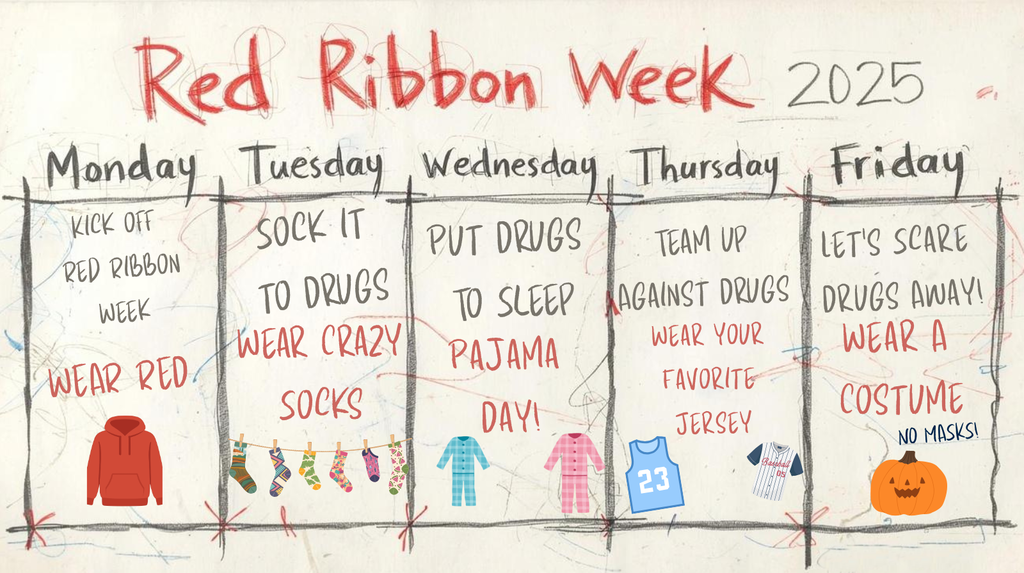 Red Ribbon Week 2025
Monday
KICK OFF
RED RIBBON
WEEK
WEAR RED
Tuesday
SOCK IT
TO DRUGS
WEAR CRAZY
SOCKS
Wednesday
PUT DRUGS
TO SLEEP
PAJAMA
DAY!
Thursday
TEAM UP
AGAINST DRUGS
WEAR YOUR
FAVORITE
JERSEY
23
Baseball
05
Friday
LET'S SCARE
DRUGS AWAY!
WEAR A
COSTUME
NO MASKS!